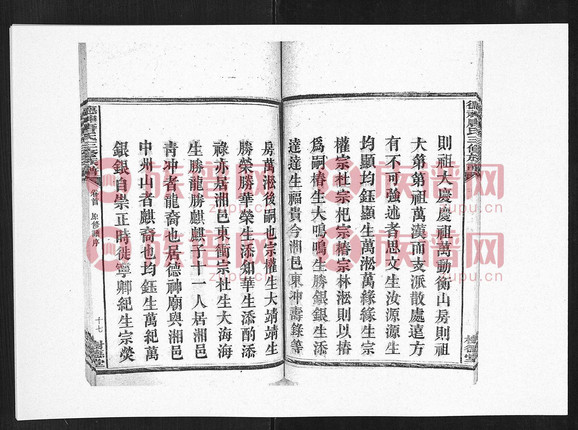 則祖大慶慶祖萬動衡山房則祖
大第弟祖萬漢而支派散處遠方
有不可強逃者思文生汝源源生
均顯均鈺顯生萬淞萬緣緣生宗
權宗杜宗杞宗椿宗林淞則以椿
為嗣椿生大鳴鳴生勝銀銀生添
達達生福貴今湘邑東沖壽錄等
房萬淞後嗣也宗權生大靖靖生
勝榮勝華榮生添如華生添酌添
祿亦居湘邑東衝宗杜生大海海
生勝龍勝麒麒子十一人居湘邑
青冲者龍裔也居德神廟與湘邑
中州山者麒裔也均鈺生萬紀萬
銀銀自崇正時徙寧卿紀生宗熒
卷首
原修譜序
十七
族譜网
zupu.cn